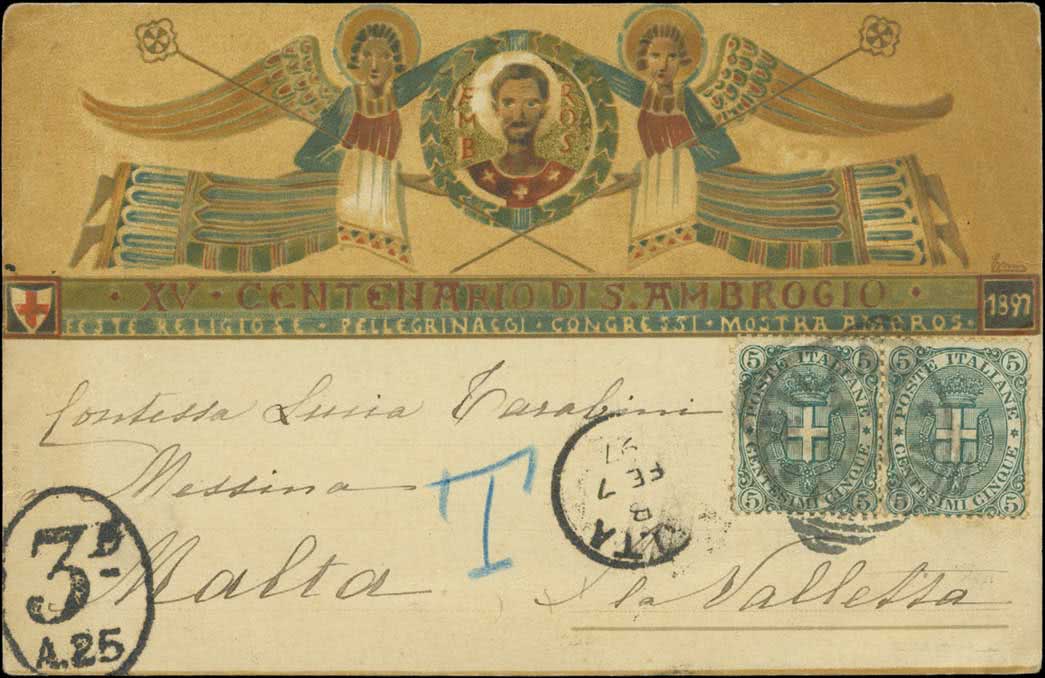 AMB ROS
· XV · CENTENARIO DI S. AMBROGIO ·
1897
FESTE RELIGIOSE · PELLEGRINAGGI · CONGRESSI · MOSTRA AMBROS ·
5 POSTE ITALIANE 5
5 CENTESIMI CINQUE 5
5 POSTE ITALIANE 5
5 CENTESIMI CINQUE 5
Contessa Lucia
Messina
T
LTA
B
FE 7
97
3D
A.25
Malta
la Valletta